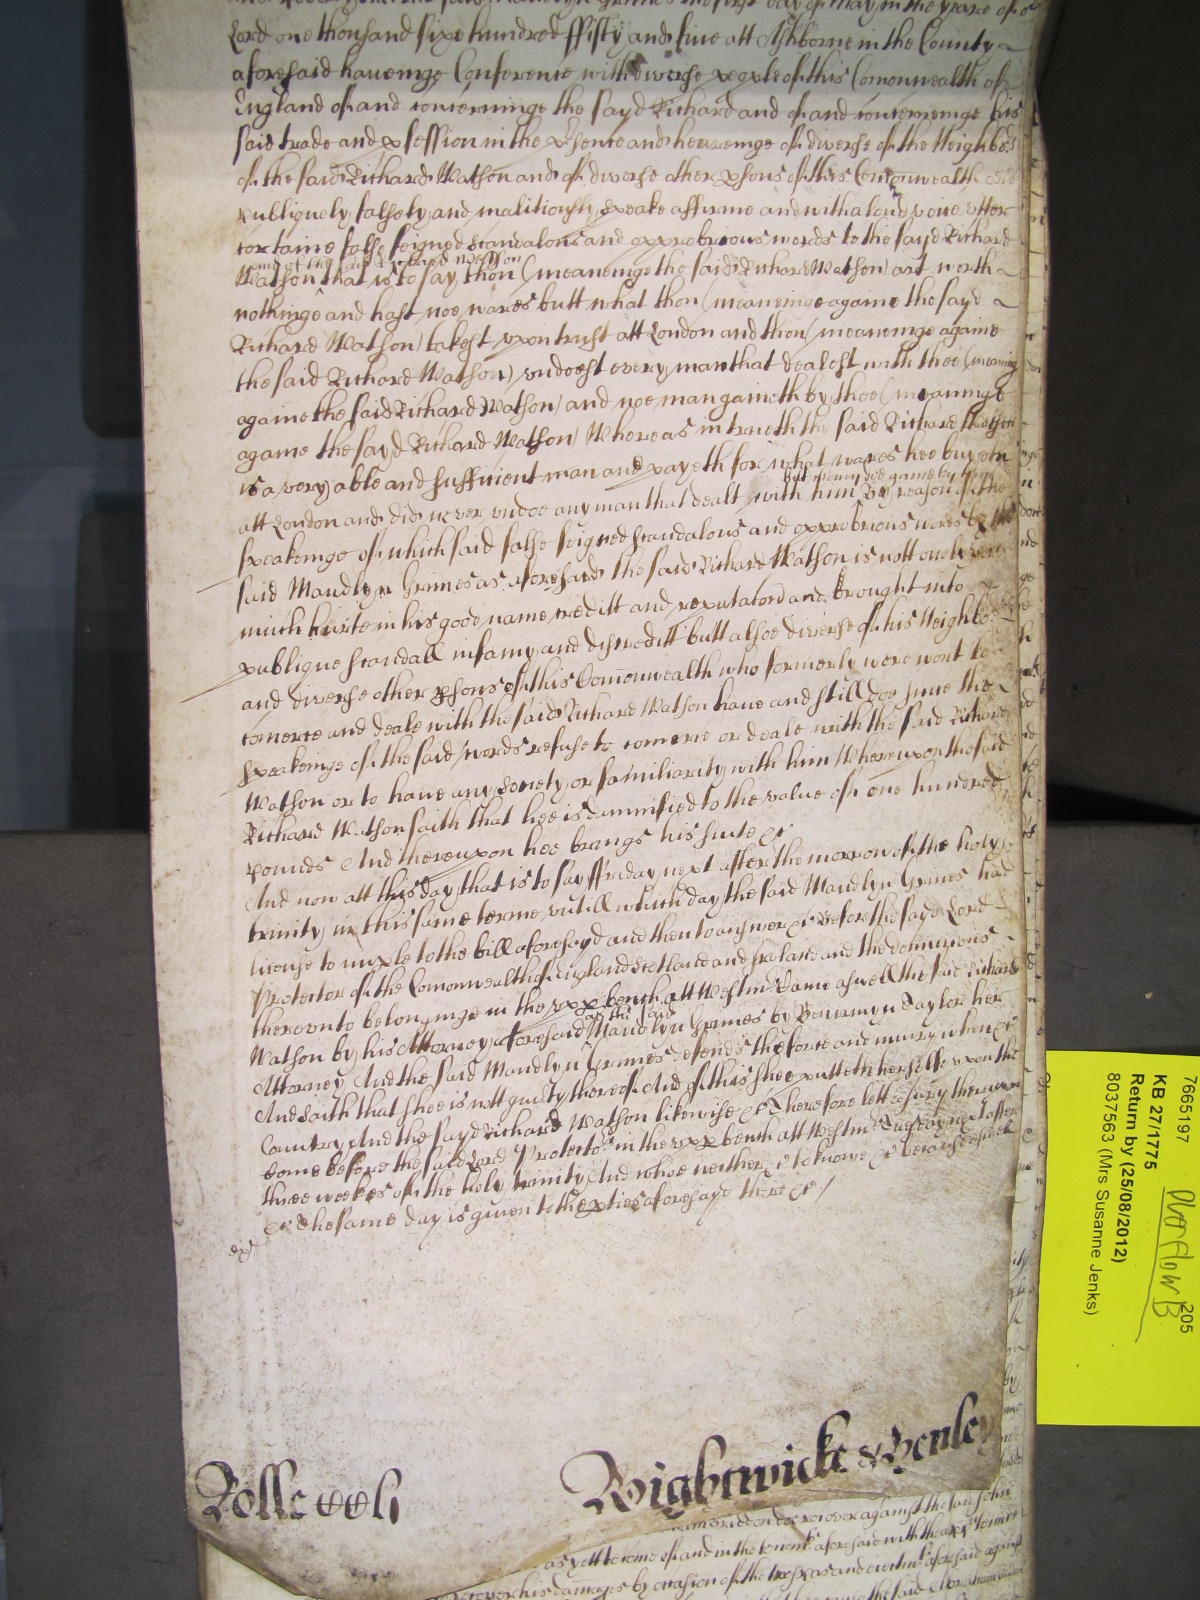 the first day of May in the yeare of o
Lord one thousand sixe hundred ffifty and five att Ashborne in the County
aforesaid haveinge Conference with diverse people of this Comonwealth of
England of and concerninge the sayd Richard and of and concerneinge his
said trade and pfession in the psence and heareinge of diverse of the Neighbors
of the said Richard Watson and of diverse other psons of this Comonwealth did
publiquely falsely and malitiously speake affirme and with a loud voice utter
certaine false feigned scandalous and opprobrious words to the sayd Richard
and of the said Richard Watson
Watson that is to say thou (meaneinge the said Richard Watson) art worth
nothinge and hast noe wares butt what thou (meaneinge againe the sayd
Richard Watson) takest upon trust att London and thou (meaneinge againe
the said Richard Watson) undoest every man that dealest with thee (meaning
againe the said Richard Watson) and noe man gaineth by thee (meaninge
againe the sayd Richard Watson) Whereas in trueth the said Richard Watson
is a very able and sufficient man and payeth for what wares hee buyeth
but many did gaine by him
att London and did never undoe any man that dealt with him By reason of the
speakeinge of which said false feigned scandalous and opprobrious words by the
said Mandlyn Grimes as aforesaid the said Richard Watson is nott onely very
much hurte in his good name creditt and reputation and brought into
publique scandall infamy and discreditt butt alsoe diverse of his Neighbors
and diverse other psons of this Comonwealth who formerly were wont to
comerce and deale with the said Richard Watson have and still doe since the
speakeinge of the said words refuse to comerce or deale with the said Richard
Watson or to have any society or familiarity with him Whereupon the said
Richard Watson saith that hee is damnified to the value of one hundred
pounds And thereupon hee brings his suite &c
And now att this day that is to say ffriday next after the morrow of the holy
trinity in this same terme untill which day the said Mandlyn Grimes had
license to imple to the bill aforesayd and then to answer &c Before the sayd Lord
Protector of the Comonwealth of England Scotland and Ireland and the dominions
thereunto belonginge in the upp bench att Westm Came aswell the said Richard
Watson by his Attorney aforesaid as the said Mandlyn Grimes by Beniamyn Taylor her
Attorney And the said Mandlyn Grimes defends the force and iniury when &c
And saith that shee is nott guilty thereof And of this shee putteth herselfe upon the
Country And the sayd Richard Watson likewise &c Therefore lett a Jury thereupon
Come before the said Lord Protector in the upp bench att Westm Tuesday next after
three weekes of the holy trinity And whoe neither &c to knowe &c because aswell
&c The same day is given to the pties aforesayd there &c /
Rolle
Rightwicke & Henley
against the said John
as yett to come of and in the tenemts aforesaid with the apps to
recover his damages by occasion of the trespas and eiectmt aforesaid against
7665197
KB 27/1775
Return by (25/08/2012)
8037563 (Mrs Susanne Jenks)
205
Overflow B